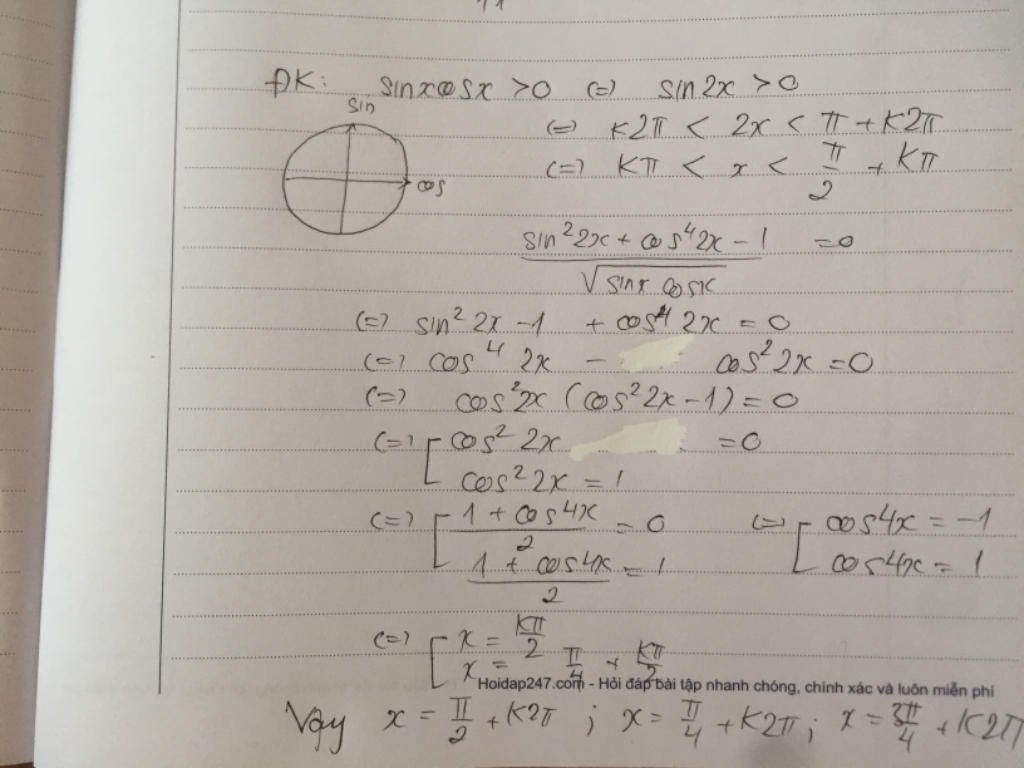 ĐK: sinxcosx > 0 (=) sin2x > 0
sin
(=) k2π < 2x < π + k2π
cos
(=) kπ < x < π/2 + kπ
(sin²2x + cos⁴2x - 1)/√(sinx cosx) = 0
(=) sin²2x - 1 + cos⁴2x = 0
(=) cos⁴2x - cos²2x = 0
(=) cos²2x (cos²2x - 1) = 0
(=) [ cos²2x = 0
cos²2x = 1
(=) [ (1 + cos4x)/2 = 0 (=) [ cos4x = -1
(1 + cos4x)/2 = 1 cos4x = 1
(=) [ x = kπ/2
x = π/4 + kπ/2
Hoidap247.com - Hỏi đáp bài tập nhanh chóng, chính xác và luôn miễn phí
Vậy x = π/2 + k2π ; x = π/4 + k2π ; x = 3π/4 + k2π